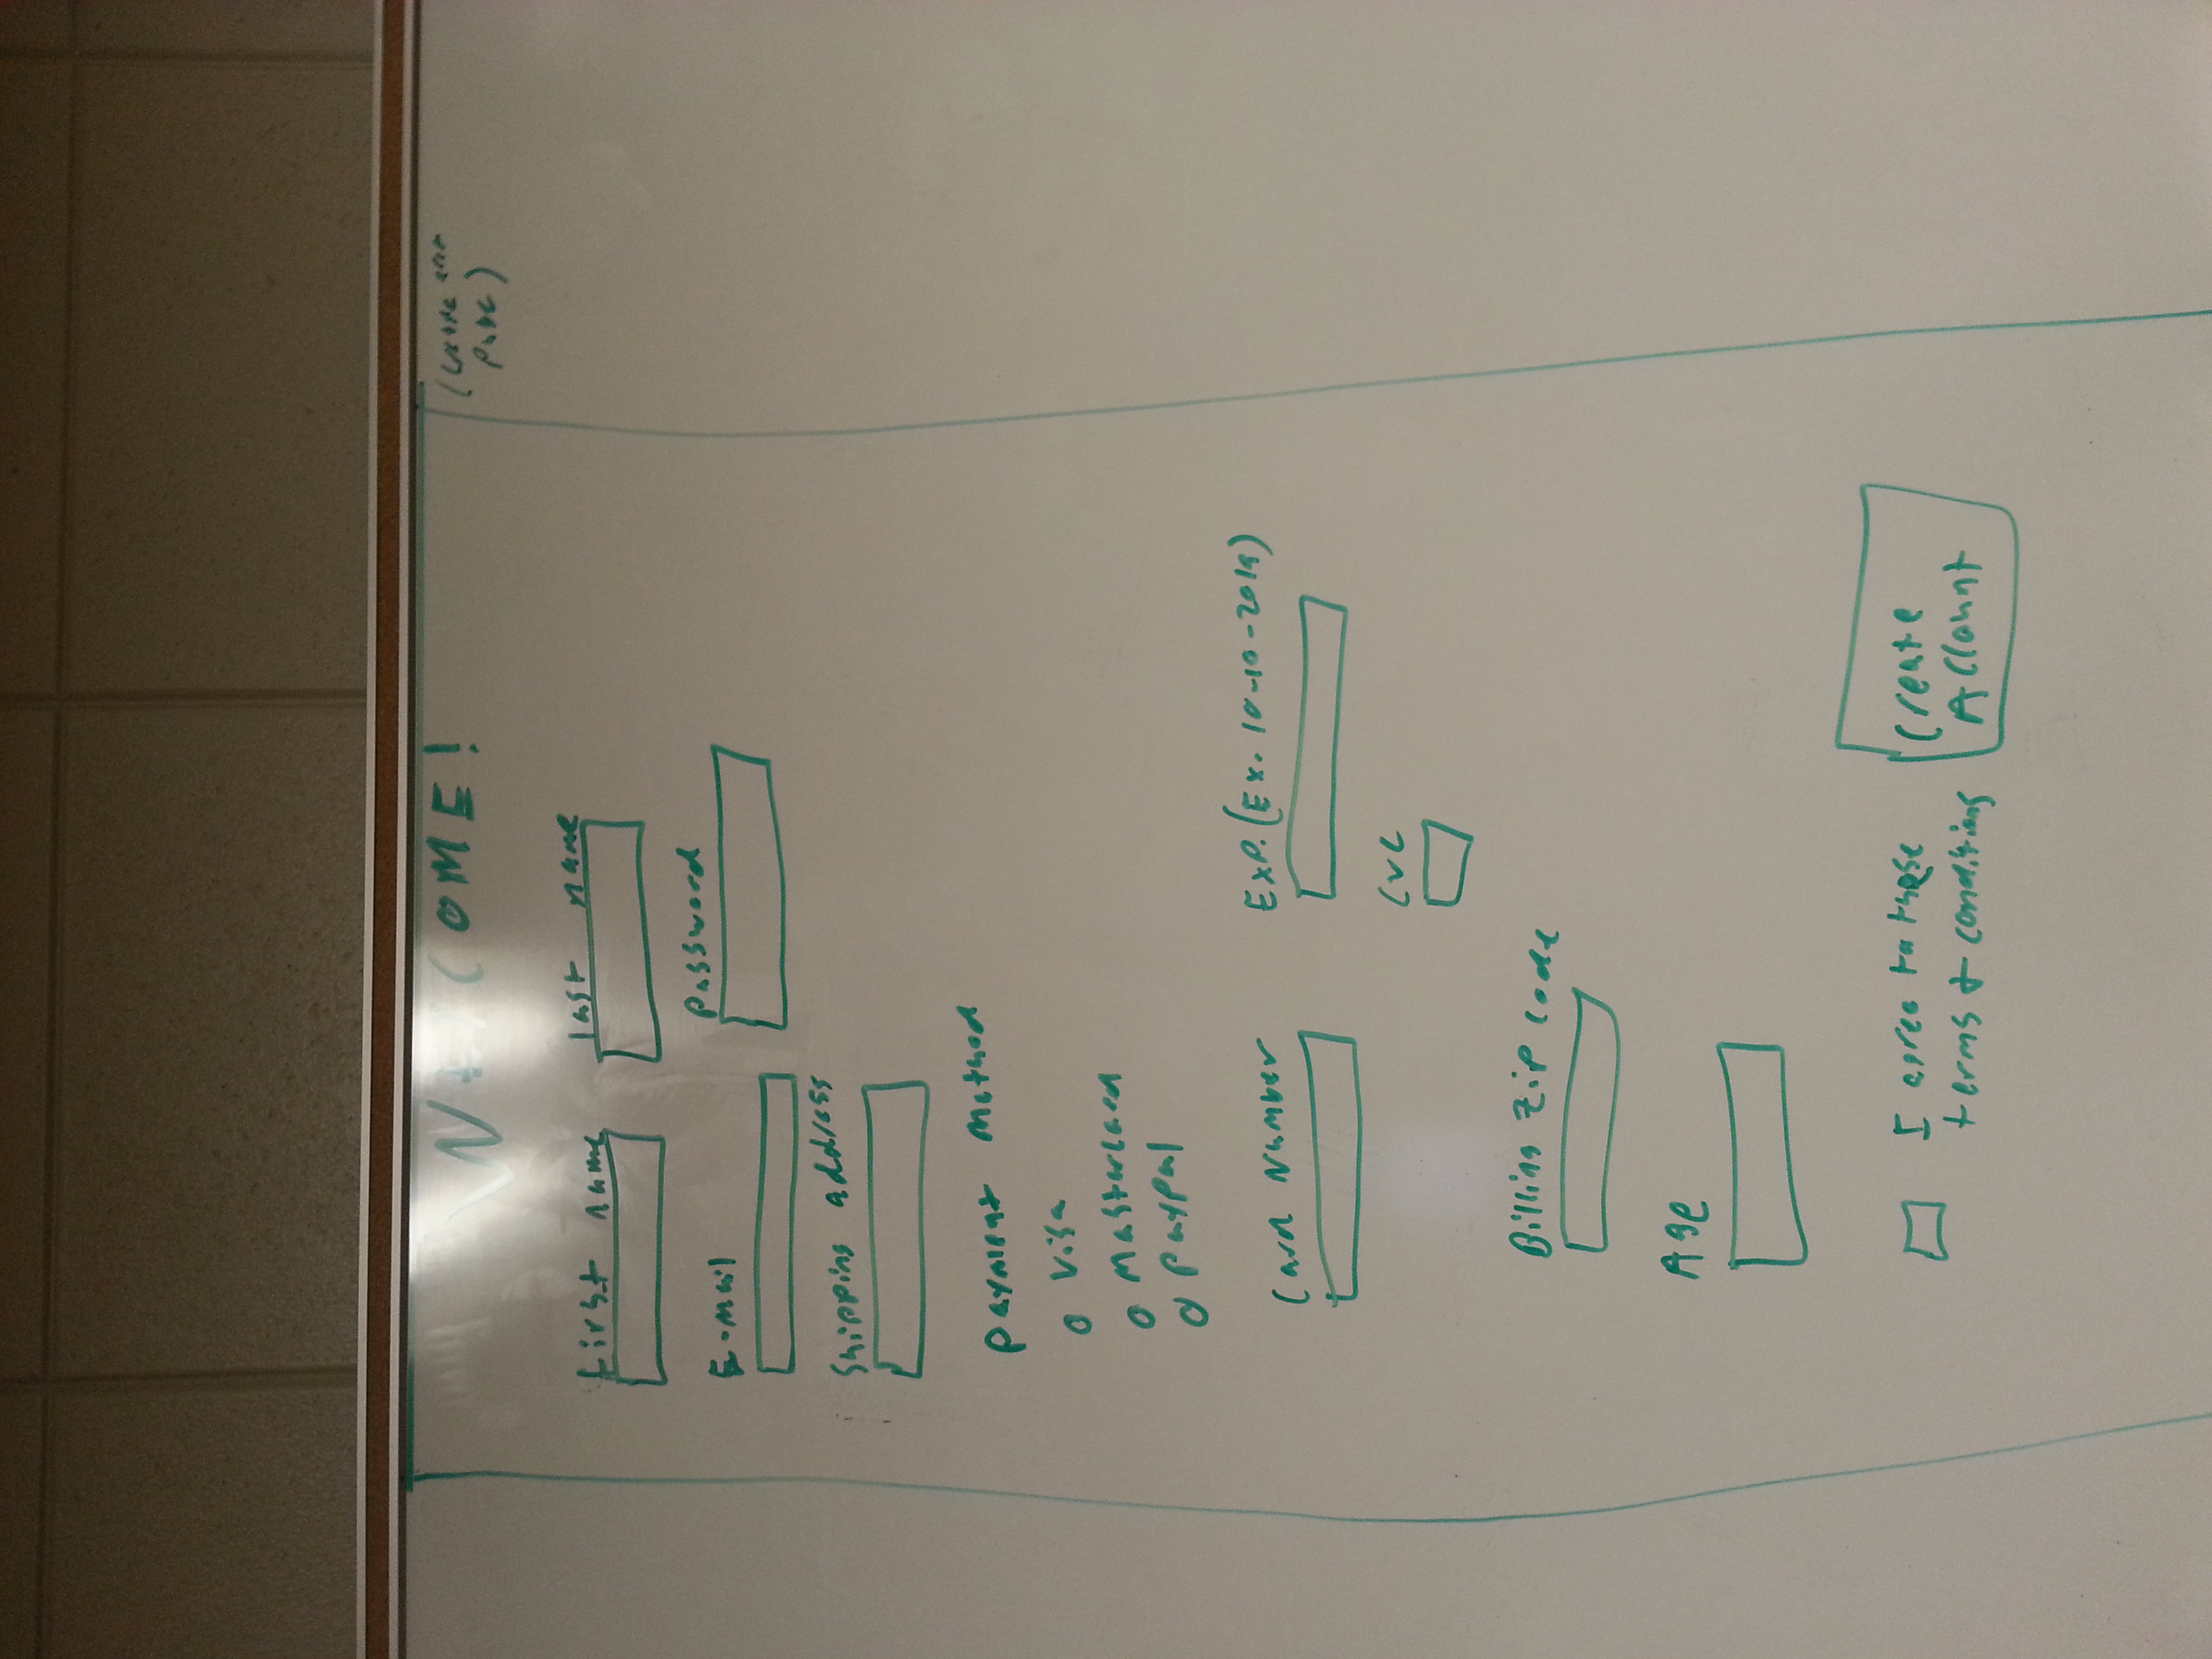 WELCOME!
First name
last name
E-mail
Password
Shipping address
Payment Method
Visa
Mastercard
PayPal
Card Number
Exp. (Ex. 10-10-2019)
CVC
Billing Zip code
Age
I agree to these
terms & conditions
Create
Account